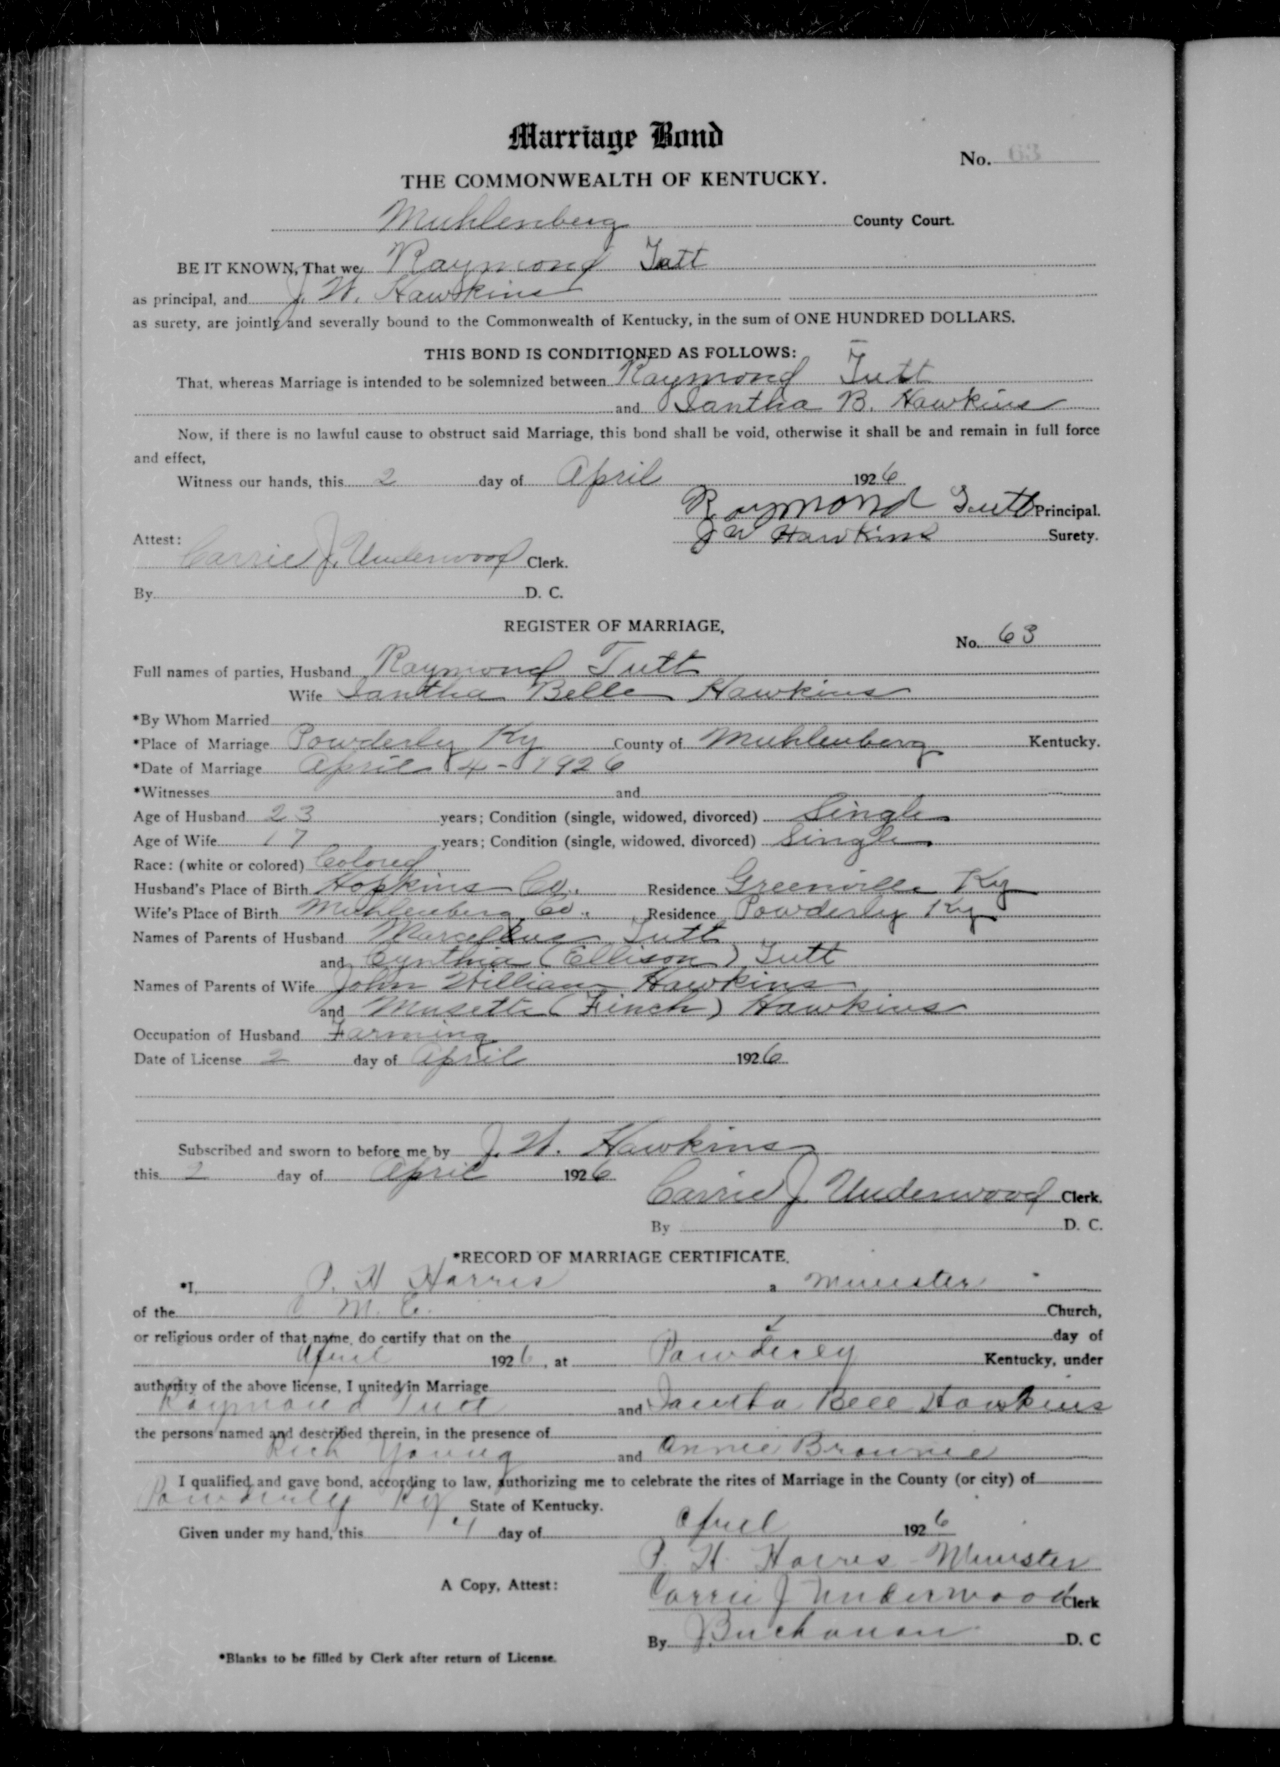 Marriage Bond
No. 63
THE COMMONWEALTH OF KENTUCKY.
Muhlenberg County Court.
BE IT KNOWN, That we, Raymond Tutt
as principal, and J. W. Hawkins
as surety, are jointly and severally bound to the Commonwealth of Kentucky, in the sum of ONE HUNDRED DOLLARS.
THIS BOND IS CONDITIONED AS FOLLOWS:
That, whereas Marriage is intended to be solemnized between Raymond Tutt
and Iantha B. Hawkins
Now, if there is no lawful cause to obstruct said Marriage, this bond shall be void, otherwise it shall be and remain in full force
and effect,
Witness our hands, this 2 day of April 1926
Raymond Tutt Principal.
Attest: J W Hawkins Surety.
Carrie J. Underwood Clerk.
By D. C.
REGISTER OF MARRIAGE,
No. 63
Full names of parties, Husband Raymond Tutt
Wife Iantha Belle Hawkins
*By Whom Married
*Place of Marriage Powderly Ky County of Muhlenberg Kentucky.
*Date of Marriage April 4 - 1926
*Witnesses and
Age of Husband 23 years; Condition (single, widowed, divorced) Single
Age of Wife 17 years; Condition (single, widowed, divorced) Single
Race: (white or colored) Colored
Husband's Place of Birth Hopkins Co. Residence Greenville Ky
Wife's Place of Birth Muhlenberg Co. Residence Powderly Ky
Names of Parents of Husband Marcellus Tutt
and Cynthia (Ellison) Tutt
Names of Parents of Wife John William Hawkins
and Musette (Finch) Hawkins
Occupation of Husband Farming
Date of License 2 day of April 1926
Subscribed and sworn to before me by J. W. Hawkins
this 2 day of April 1926
Carrie J. Underwood Clerk.
By D. C.
*RECORD OF MARRIAGE CERTIFICATE.
*I, P. H Harris a Minister
of the C. M. E. Church,
or religious order of that name, do certify that on the day of
April 1926, at Powderly Kentucky, under
authority of the above license, I united in Marriage
Raymond Tutt and Iantha Bell Hawkins
the persons named and described therein, in the presence of
Rich Young and Annie Brownie
I qualified and gave bond, according to law, authorizing me to celebrate the rites of Marriage in the County (or city) of
Powderly Ky State of Kentucky.
Given under my hand, this 4 day of April 1926
P. H. Harris - Minister
A Copy, Attest: Carrie J Underwood Clerk
By J Buchanan D. C
*Blanks to be filled by Clerk after return of License.